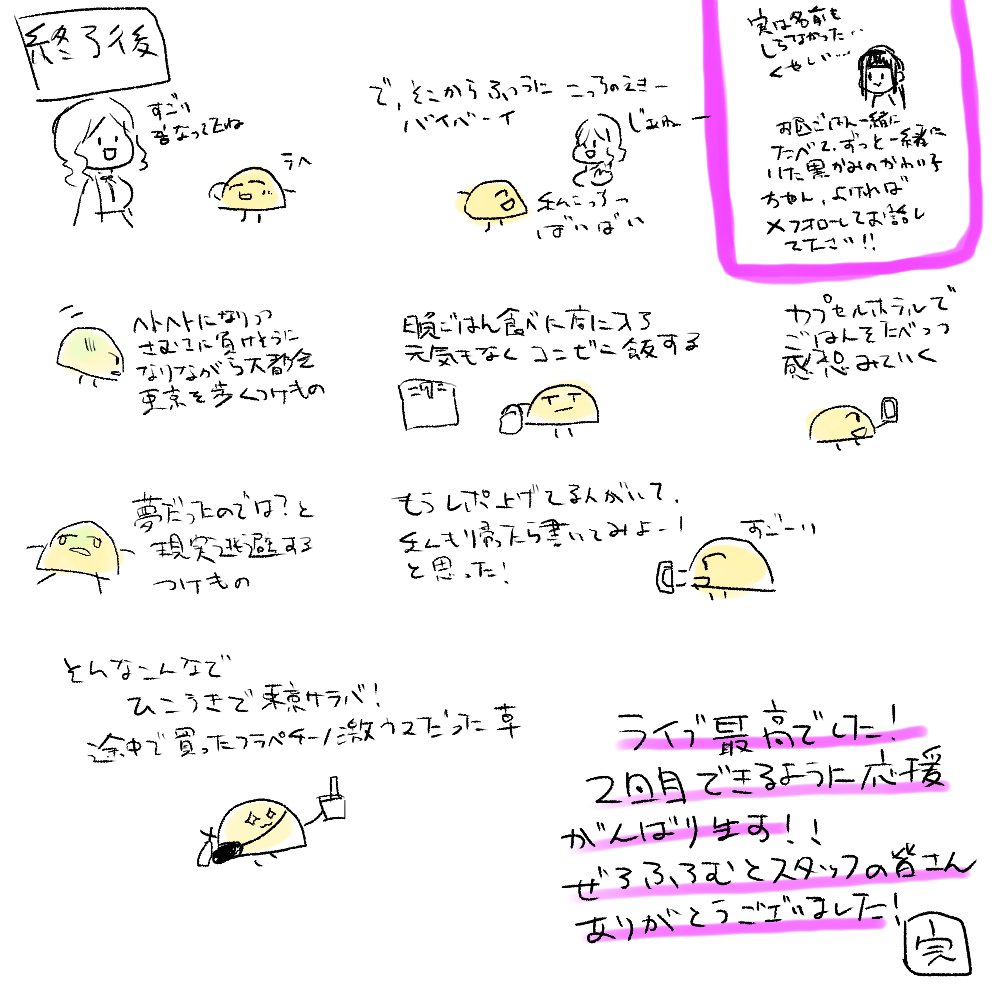 終了後
すごい
昔なってたね
ラヘ
で、そこからふつうに こっちのえきー
バイバーイ
じぁねー
私こっちっ
ばいばい
実は名前も
しらなかった‥
くやしい…
お凸ごはん一緒に
たべて、ずっと一緒に
いた黒かみのかわい子
ちゃん、よければ
×フォローしてお話し
てたさい!!
ヘトヘトになりつつ
さむさに負けそうに
なりながら大都会
東京を歩くつけもの
晩ごはん食べに店に入る
元気もなくコンビニ飯する
カプセルホテルで
ごはんをたべつつ
感想みていく
夢だったのでは?と
現実逃避する
つけもの
もうレポ上げてる人がいて、
私も帰ったら書いてみよー!
と思った!
すごーい
そんなこんなで
ひこうきで東京サラバ!
途中で買ったフラペチーノ激ウマだった 草
ライブ最高でした!
2回目できるように応援
がんばり生す!!
ぜろふろむとスタッフの皆さん
ありがとうございました!
完